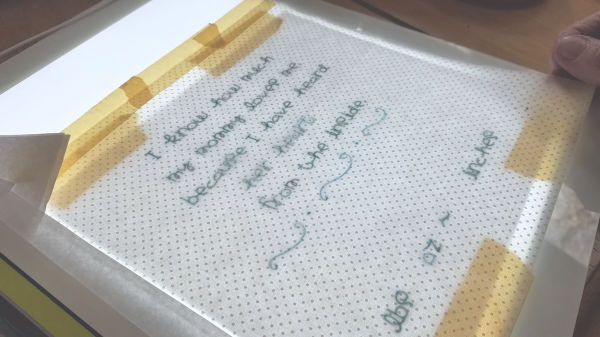 I know how much
my mommy loves me
because I have heard
her heart
from the inside
inches
~
oz
lbs